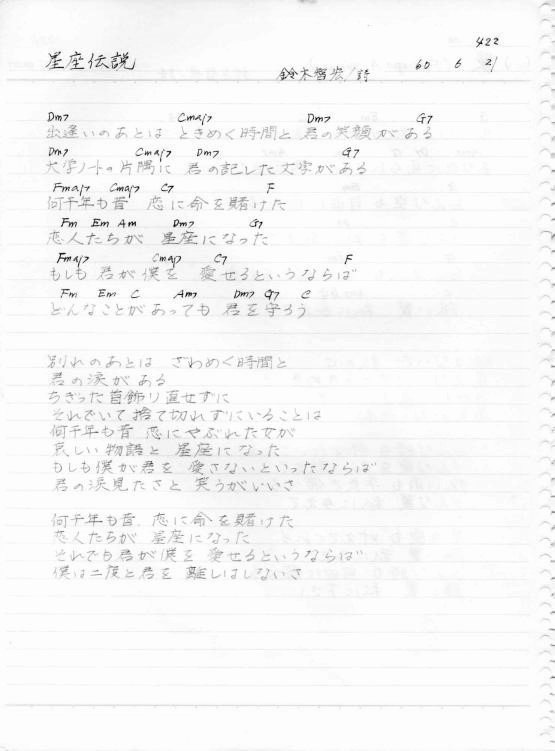 422
星座伝説
鈴木智宏/詩 60 6 21
Dm7 Cmaj7 Dm7 G7
出逢いのあとは ときめく時間と 君の笑顔がある
Dm7 Cmaj7 Dm7 G7
大学ノートの片隅に 君の記した文字がある
Fmaj7 Cmaj7 C7 F
何千年も昔 恋に命を賭けた
Fm Em Am Dm7 G7
恋人たちが 星座になった
Fmaj7 Cmaj7 C7 F
もしも君が僕を 愛せるというならば
Fm Em C Am7 Dm7 G7 C
どんなことがあっても 君を守ろう
別れのあとは ざわめく時間と
君の涙がある
ちぎった首飾り直せずに
それでいて捨て切れずにいることは
何千年も昔 恋にやぶれた女が
哀しい物語と 星座になった
もしも僕が君を 愛さないといったならば
君の涙見たさと 笑うがいいさ
何千年も昔 恋に命を賭けた
恋人たちが 星座になった
それでも君が僕を 愛せるというならば
僕は二度と君を 離しはしないさ